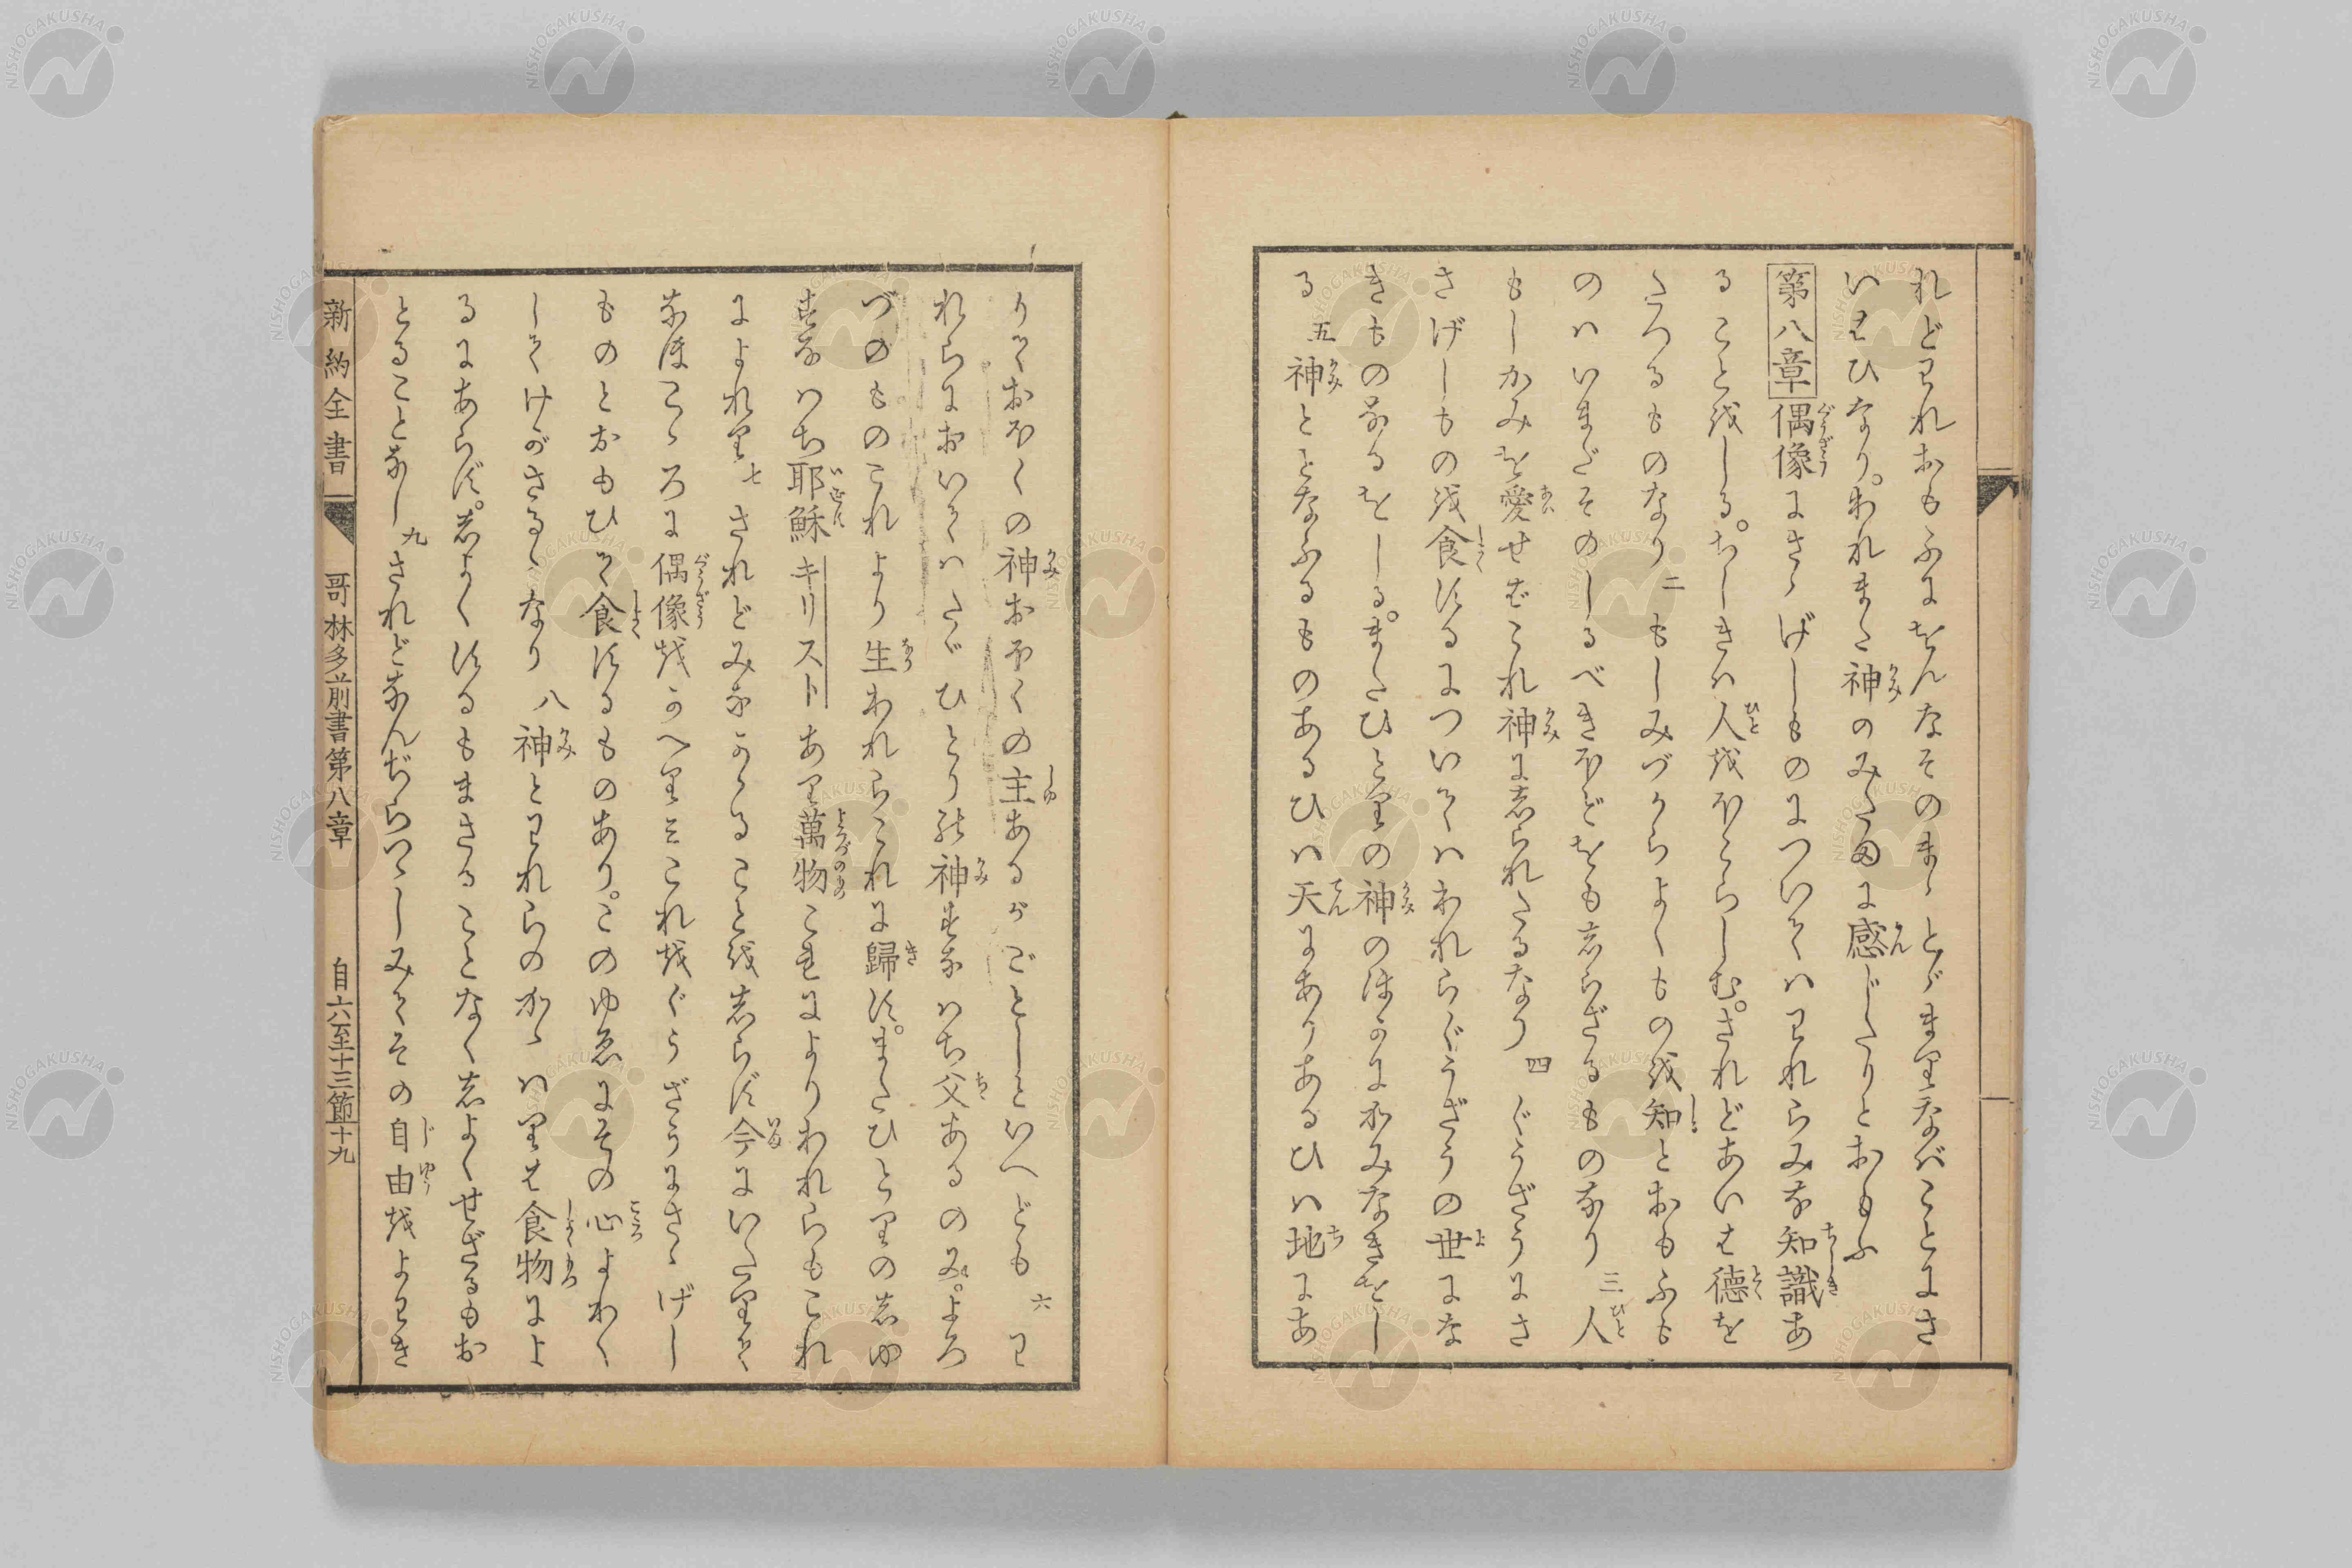 れどわれおもふにをんなそのまゝとゞまりなバことにさ
いはひなり。われまた神のみたまに感じたりとおもふ
第八章 偶像にさゝげしものについてハわれらみな知識あ
ることをしる。ちしきハ人をほこらしむ。されどあいは徳を
たつるものなり 二 もしみづからよくものを知とおもふも
のハいまだそのしるべきほどをもしらざるものなり 三 人
もしかみを愛せばこれ神にしられたるなり 四 ぐうざうにさ
さげしものを食するについてハわれらぐうざうの世にな
きものなるをしる。またひとりの神のほかにかみなきをし
る 五 神ととなふるものあるひハ天にありあるひハ地にあ
りておほくの神おほくの主あるがごとしといへども 六 わ
れらにおいてハたゞひとりの神すなハち父あるのみ。よろ
づのものこれより生われらこれに歸す。またひとりのしゆ
すなハち耶穌キリストあり萬物これによりわれらもこれ
によれり 七 されどみなかゝることをしらず今にいたりて
なほこゝろに偶像をかへりミこれをぐうざうにさゝげし
ものとおもひて食するものあり。このゆゑにその心よわく
してけがさるゝなり 八 神とわれらのかゝハりは食物によ
るにあらず。しよくするもまさることなくしよくせざるもお
とることなし 九 されどなんぢらつゝしみてその自由をよわき
新約全書 哥林多前書第八章 自六至十三節 十九
NISHOGAKUSHA